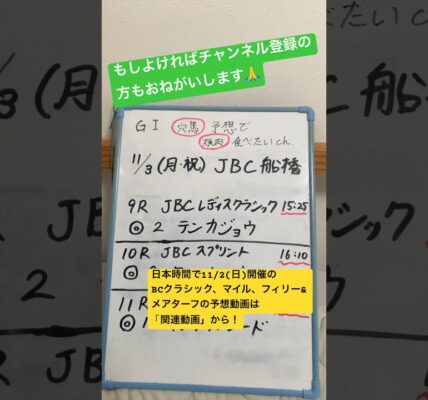 もしよければチャンネル登録の
方もおねがいします🙏
GI 穴馬 予想で
焼肉 食べたいch.
11/3(月・祝) JBC船橋
9R JBCレディスクラシック 15:25
◎ 2 テンカジョウ
10R JBCスプリント 16:10
日本時間で11/2(日)開催の
BCクラシック、マイル、フィリー&
メアターフの予想動画は
「関連動画」から！
11R
◎